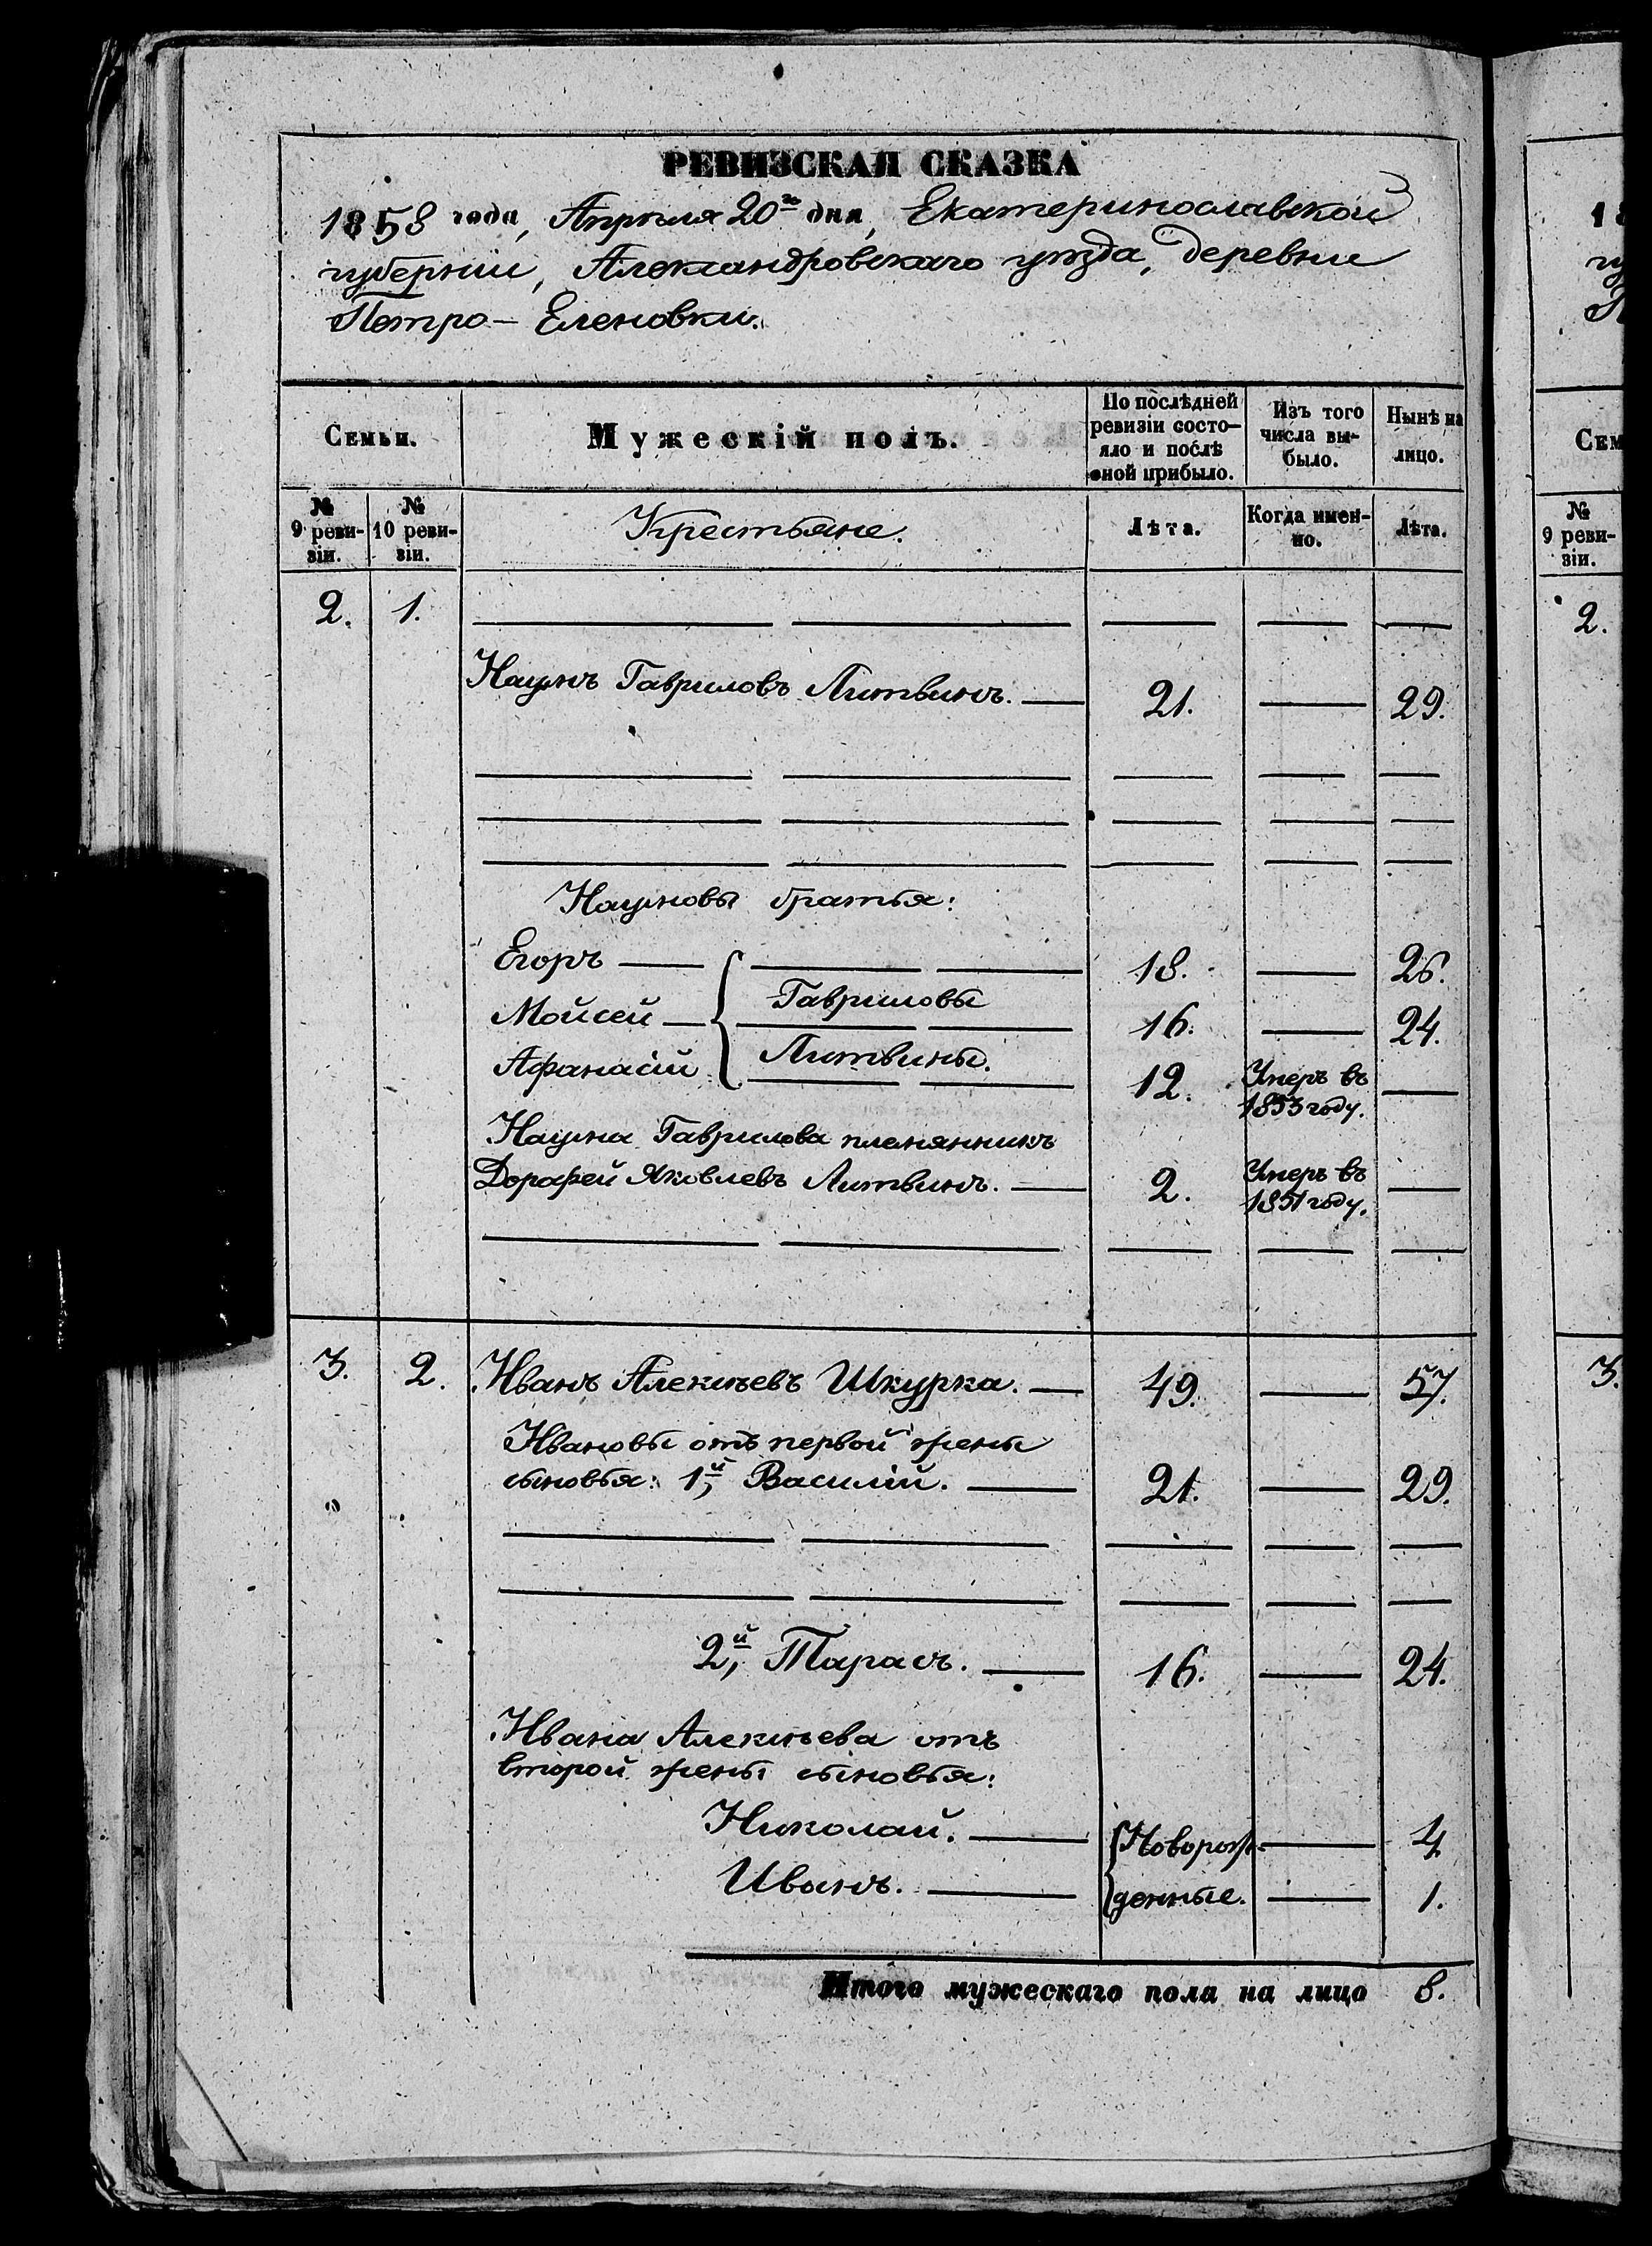 РЕВИЗСКАЯ СКАЗКА
1858 года, Апреля 20го дня, Екатеринославской
губернии, Александровскаго уезда, деревни
Петро-Еленовки.
Семьи.
Мужескій полъ.
По послѣдней ревизіи состо-
яло и послѣ оной прибыло.
Изъ того числа вы-
было.
Нынѣ на лицо.
№ 9 реви-
зіи.
№ 10 реви-
зіи.
Крестьяне.
Лѣта.
Когда имен-
но.
Лѣта.
2. 1.
Наумъ Гавриловъ Литвинъ. 21. 29.
Наумовы братья:
Егоръ 18. 26.
Гавриловы
Мойсей 16. 24.
Литвины.
Афанасій 12. Умеръ въ
1853 году.
Наума Гаврилова племянникъ
Дорофей Яковлевъ Литвинъ. 2. Умеръ въ
1851 году.
3. 2. Иванъ Алексѣевъ Шкурка. 49. 57.
Ивановы отъ первой жены
сыновья: 1й, Василій. 21. 29.
2й, Тарасъ. 16. 24.
Ивана Алексѣева отъ
второй жены сыновья:
Николай. Новорож- 4
Иванъ. денные. 1.
Итого мужескаго пола на лицо 8.
18
Сем
№
9 реви-
зіи.
2.
3.